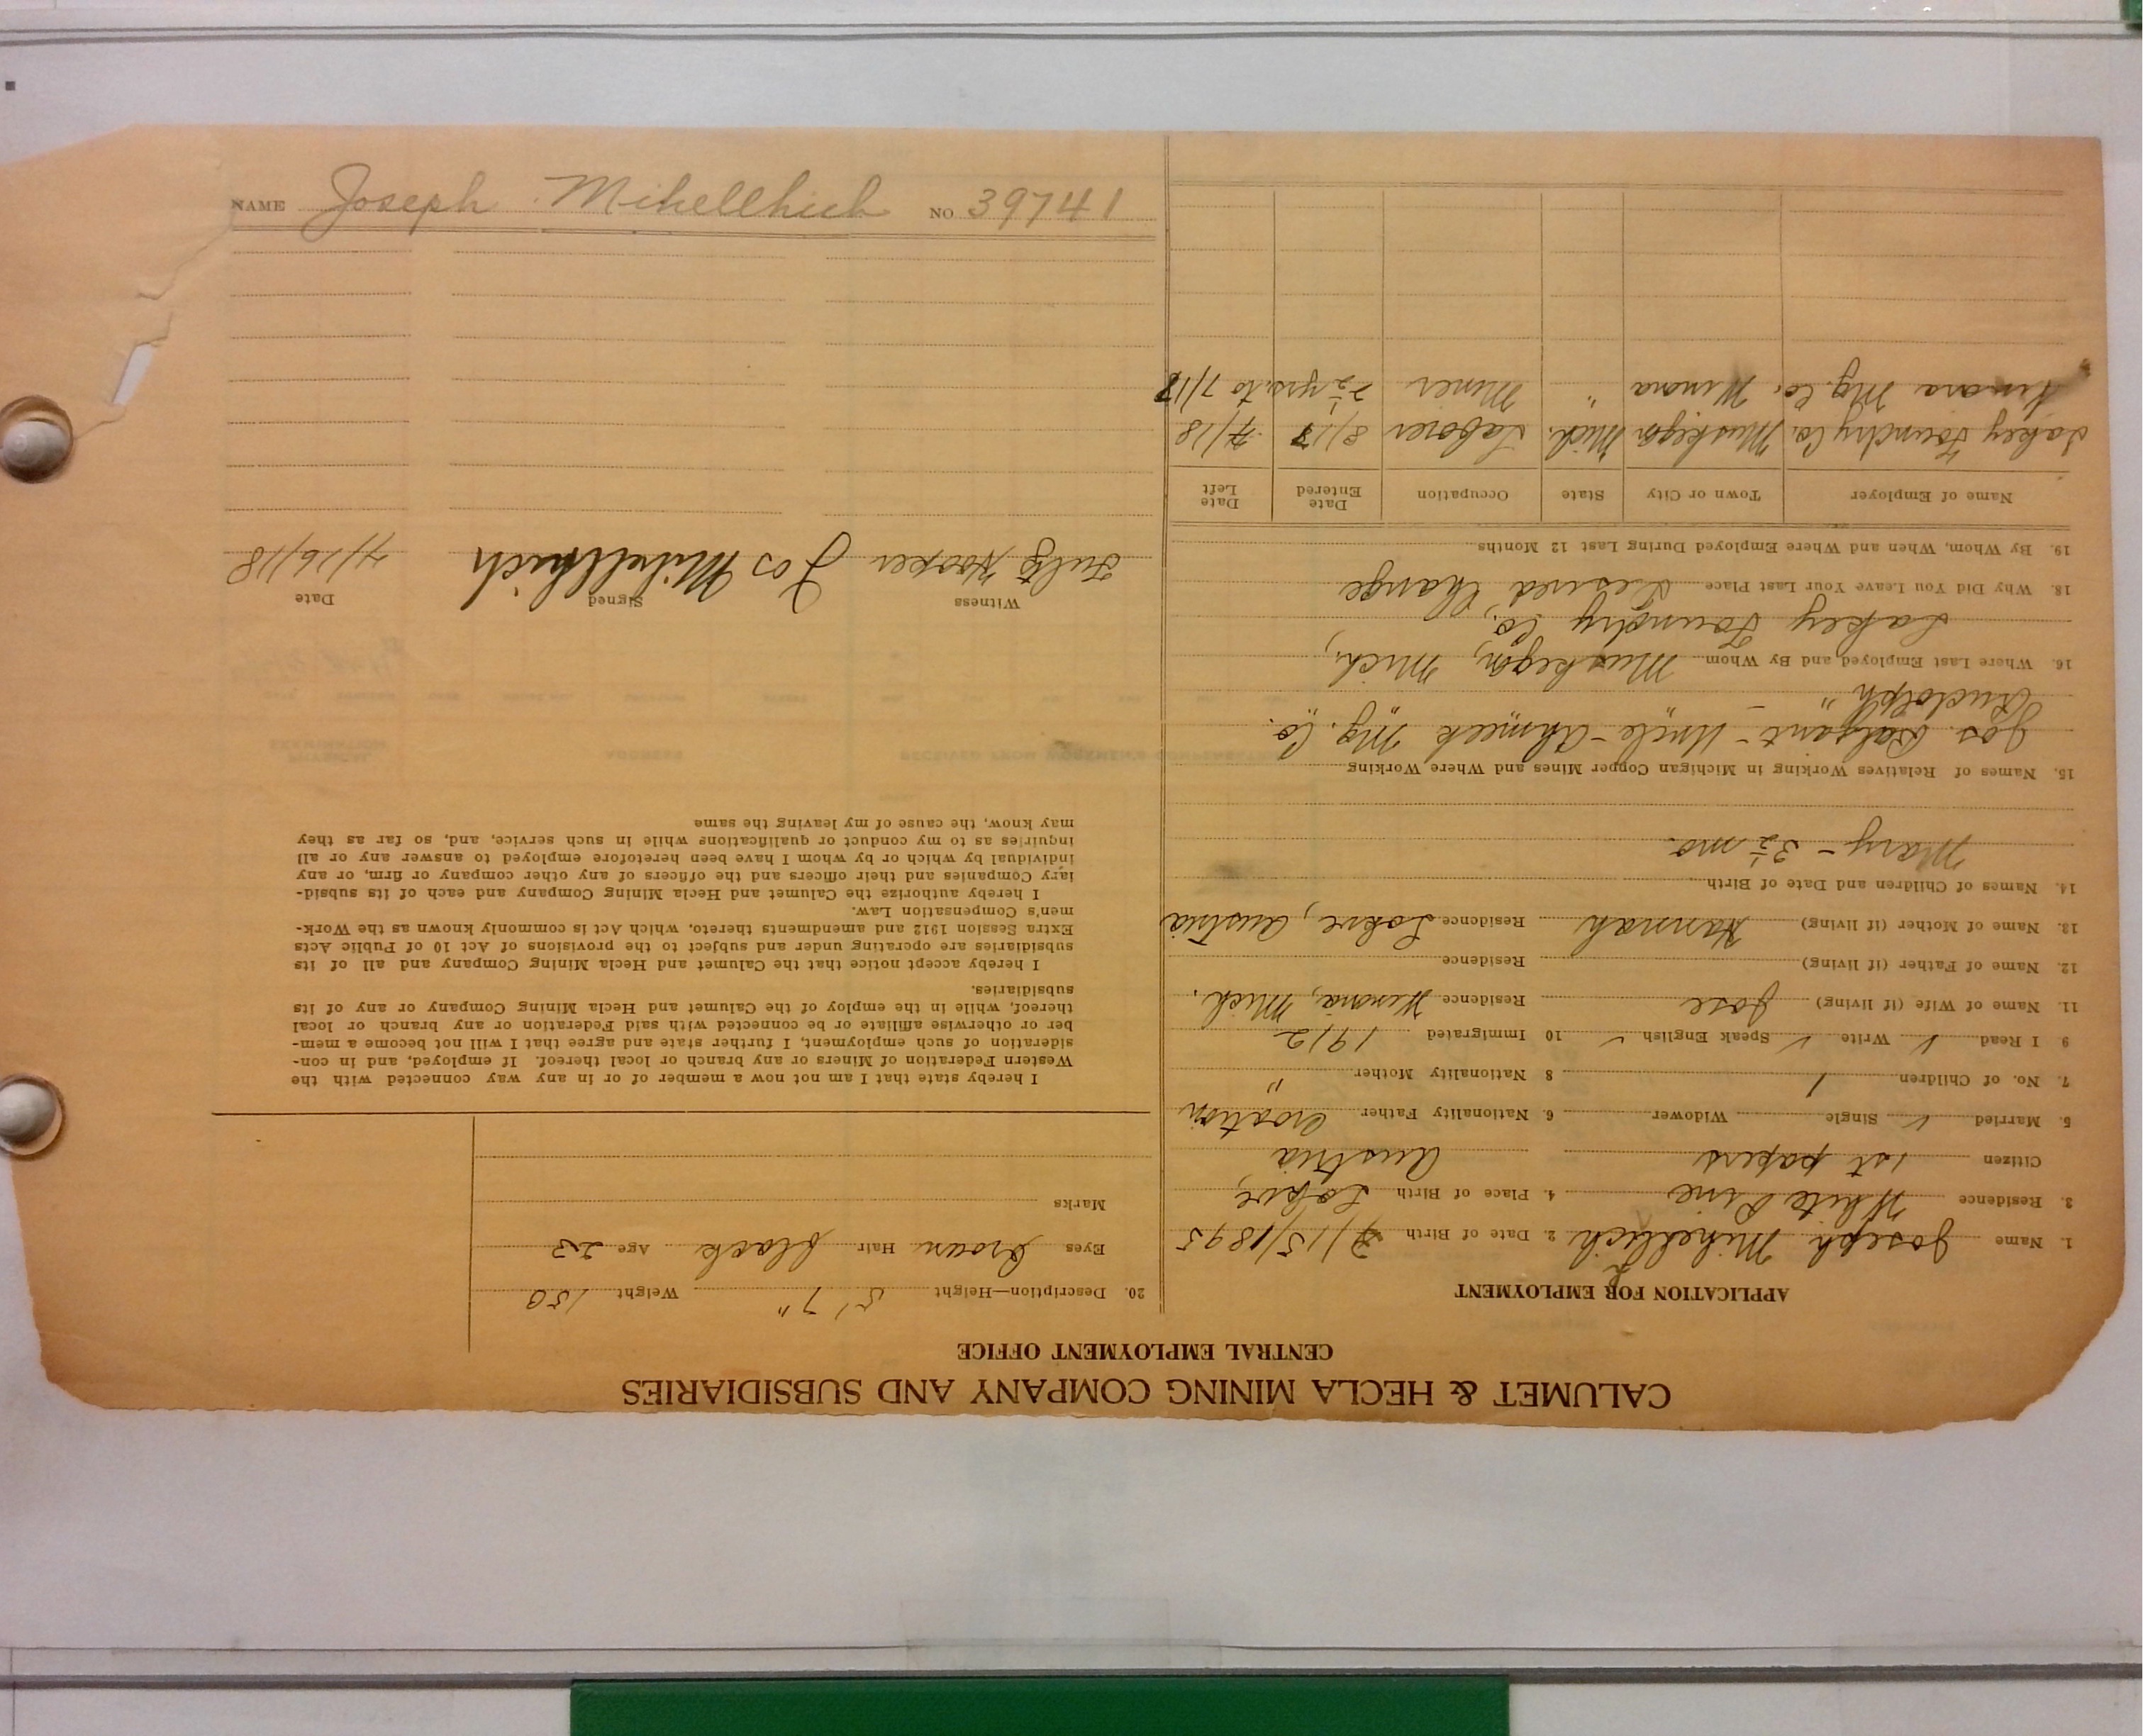 CALUMET & HECLA MINING COMPANY AND SUBSIDIARIES
CENTRAL EMPLOYMENT OFFICE
APPLICATION FOR EMPLOYMENT
1. Name Joseph Mihellich 2. Date of Birth 7/15/1895
3. Residence White Pine 4. Place of Birth Lokve,
Citizen 1st papers Austria
5. Married ✓ Single Widower 6. Nationality Father Croatian
7. No. of Children 1 8 Nationality Mother "
9 I Read ✓ Write ✓ Speak English ✓ 10 Immigrated 1912
11. Name of Wife (if living) Jose Residence Winona, Mich.
12. Name of Father (if living) Residence
13. Name of Mother (if living) Hannah Residence Lokve, Austria
14. Names of Children and Date of Birth
Mary - 3½ mo.
15. Names of Relatives Working in Michigan Copper Mines and Where Working
Jos. - Uncle - Ahmeek Mg. Co.
Rudolph " " " "
16. Where Last Employed and By Whom Muskegon, Mich.,
Lakey Foundry Co.
18. Why Did You Leave Your Last Place Desired Change
19. By Whom, When and Where Employed During Last 12 Months
Name of Employer Town or City State Occupation Date Entered Date Left
Lakey Foundry Co. Muskegon Mich. Laborer 8/17 7/18
Winona Mg. Co. Winona " Miner 2½ yrs. to 7/17
20. Description—Height 5' 7" Weight 150
Eyes Brown Hair black Age 23
Marks
I hereby state that I am not now a member of or in any way connected with the
Western Federation of Miners or any branch or local thereof. If employed, and in con-
sideration of such employment, I further state and agree that I will not become a mem-
ber or otherwise affiliate or be connected with said Federation or any branch or local
thereof, while in the employ of the Calumet and Hecla Mining Company or any of its
subsidiaries.
I hereby accept notice that the Calumet and Hecla Mining Company and all of its
subsidiaries are operating under and subject to the provisions of Act 10 of Public Acts
Extra Session 1912 and amendments thereto, which Act is commonly known as the Work-
men's Compensation Law.
I hereby authorize the Calumet and Hecla Mining Company and each of its subsid-
iary Companies and their officers and the officers of any other company or firm, or any
individual by which or by whom I have been heretofore employed to answer any or all
inquiries as to my conduct or qualifications while in such service, and, so far as they
may know, the cause of my leaving the same
Witness Signed Date
Hooper Jos Mihellhich 7/16/18
NAME Joseph Mihellhich NO 39741